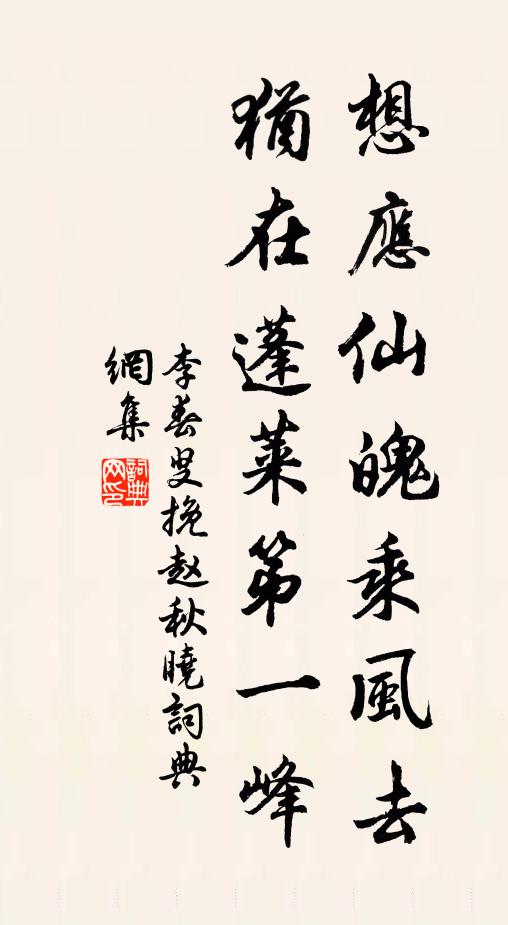 想應仙魄乘風去
猶在蓬萊第一峰
李春叟挽赵秋曉詞典
網集
詞典
网印